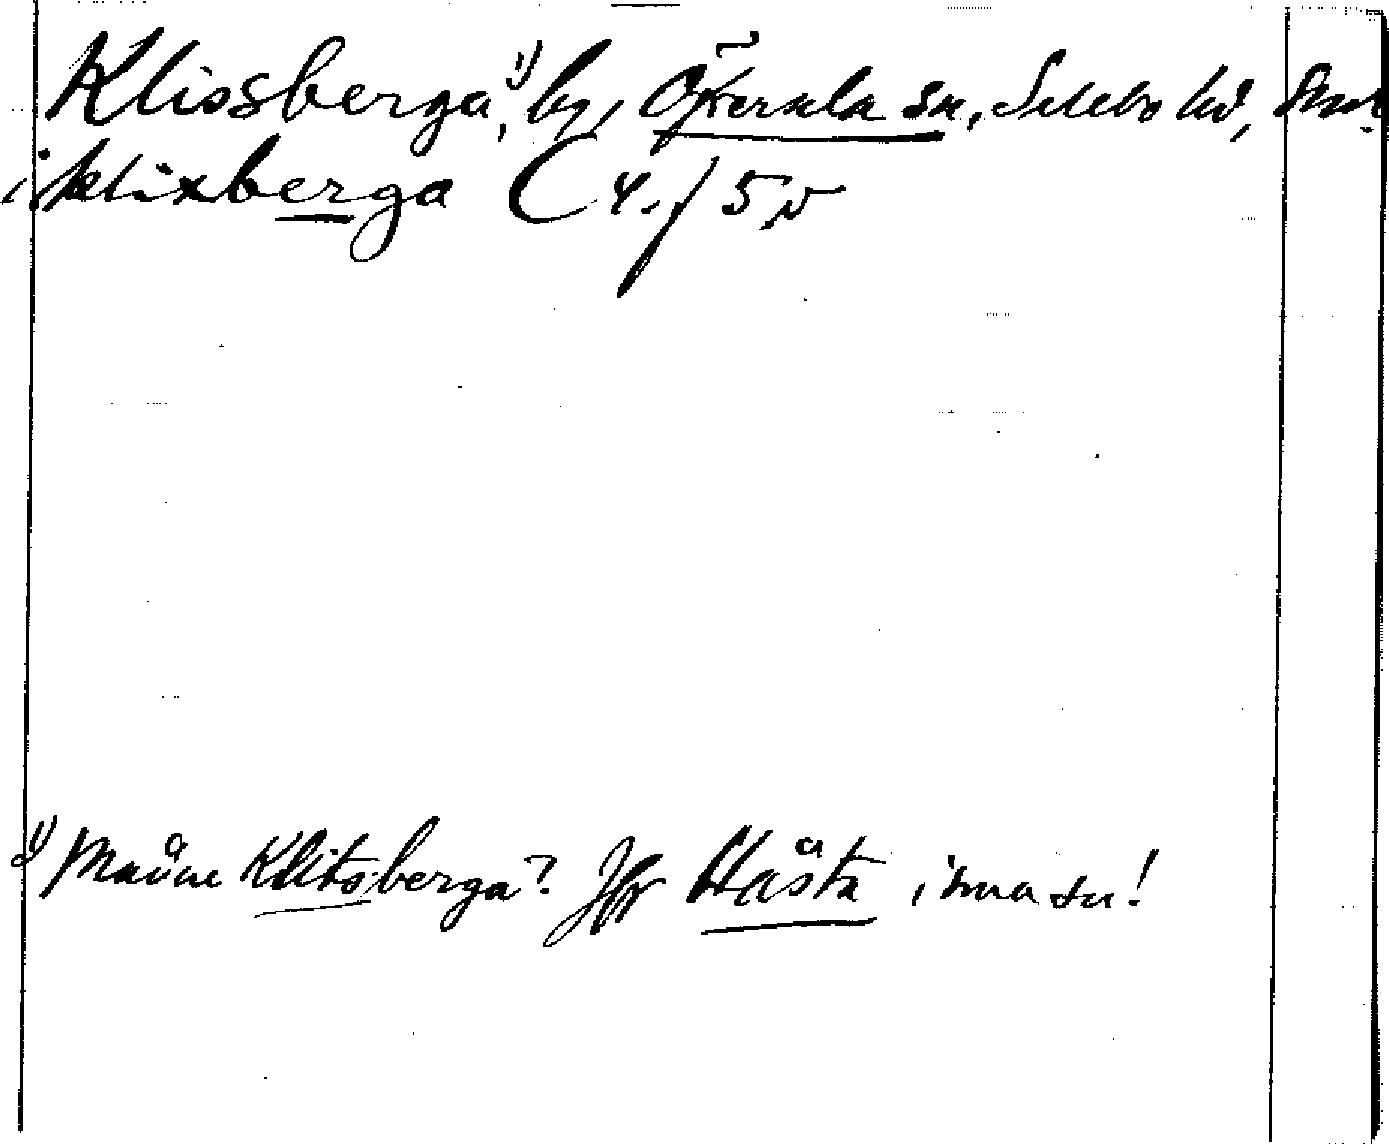 Klissberga,¹⁾ by, Åkerula sn, Selebo hd,
i Klixberga C 4:15 v
¹⁾ Månne Klitsberga? Jfr Hästa i sma sn!